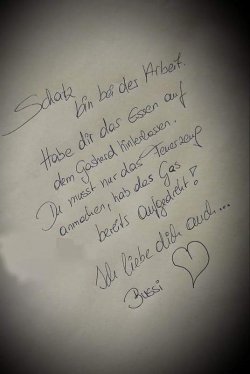 Schatz
bin bei der Arbeit.
Habe dir das Essen auf
dem Gasherd hinterlassen.
Du musst nur das Feuerzeug
anmachen, hab das Gas
bereits aufgedreht!
Ich liebe dich auch...
Bussi